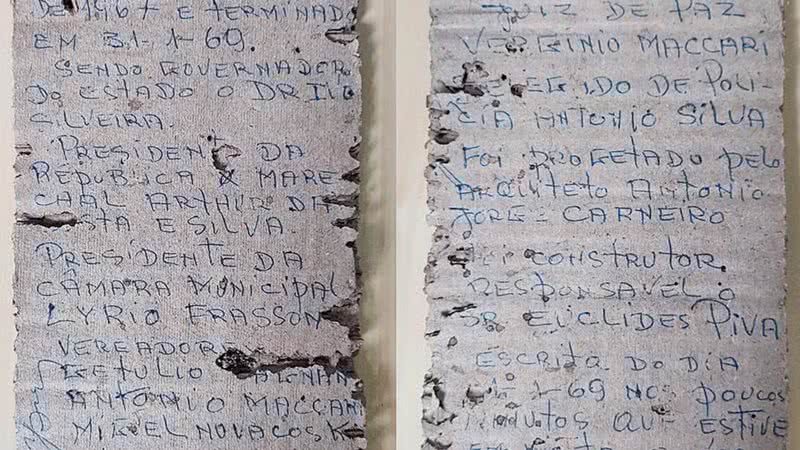 DE 1967 E TERMINADO
EM 31-1-69.
SENDO GOVERNADOR
DO ESTADO O DR IVO
SILVEIRA.
PRESIDENTE DA
REPUBLICA MARE-
CHAL ARTHUR DA
STA E SILVA.
PRESIDENTE DA
CÂMARA MUNICIPAL
LYRIO FRASSON
VEREADORE
GETULIO
ANTONIO MACCARI
MIGUEL NOVACOSKI
JUIZ DE PAZ
VERGINIO MACCARI
DELEGIDO DE POLI-
CIA ANTONIO SILVA
FOI PROGETADO PELO
ARQUITETO ANTONIO
JORGE CARNEIRO
FOI CONSTRUTOR
RESPONSAVEL O
SR EUCLIDES PIVA
ESCRITA DO DIA
1-69 NOS POUCOS
MINUTOS QUE ESTIVE